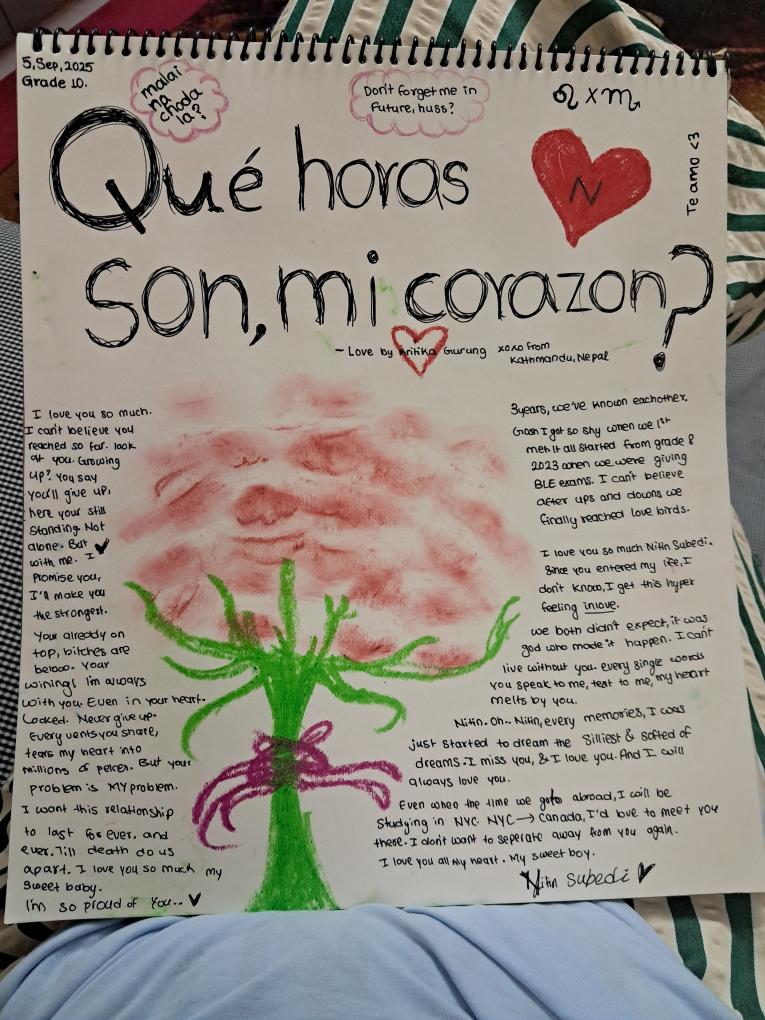 5,Sep,2025
Grade 10.
malai
na
choda
la?
Don't forget me in
Future, huss?
♌ x ♏
Te amo <3
Qué horas
N
son, mi corazon?
- Love by Kritika Gurung xoxo from
Kathmandu, Nepal
I love you so much.
I can't believe you
reached so far. look
at you. Growing
up? You say
you'll give up,
here your still
standing. Not
alone. But
with me. I
Promise you,
I'll make you
the strongest.
Your already on
top, bitches are
beloo. Your
wining! I'm always
with you. Even in your heart.
Locked. Never give up.
Every vents you share,
tears my heart into
millions of peices. But your
problem is MY problem.
I want this relationship
to last for ever, and
ever. Till death do us
apart. I love you so much my
sweet baby.
I'm so proud of you.. ♥
3years, we've known eachother.
Gosh I got so shy when we 1st
met. It all started from grade 8
2023 when we were giving
BLE exams. I can't believe
after ups and downs we
finally reached love birds.
I love you so much Nitin Subedi.
Since you entered my life, I
don't know, I get this hyper
feeling inlove.
we both didn't expect, it was
god who made it happen. I can't
live without you. every single words
you speak to me, text to me, my heart
melts by you.
Nitin. Oh.. Nitin, every memories, I was
just started to dream the silliest & softed of
dreams. I miss you, & I love you. And I will
always love you.
Even when the time we goto abroad, I will be
studying in NYC. NYC → Canada, I'd love to meet you
there. I don't want to seperate away from you again.
I love you all my heart. My sweet boy.
Nitin Subedi ♥